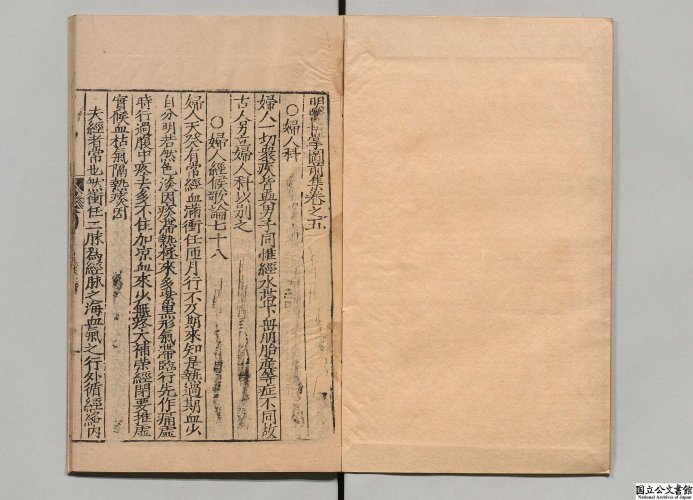 明醫指掌圖前集卷之五
○婦人科
婦人一切衆疾皆與男子同惟經水帶下血崩胎產等症不同故
古人另立婦人科以別之
○婦人經候歌論七十八
婦人天癸有常經血滿衝任面月行不及期來知是熱過期血少
自分明若然色淡因痰滯熱極來多紫黑形氣滯臨行先作痛虛
時行過腹中疼去多不住加凉血來少無疼大補榮經閉要推虛
實候血枯氣隔熱痰因
夫經者常也然衝任二脉爲經脉之海血氣之行外循經絡內
国立公文書館
National Archives of Japan